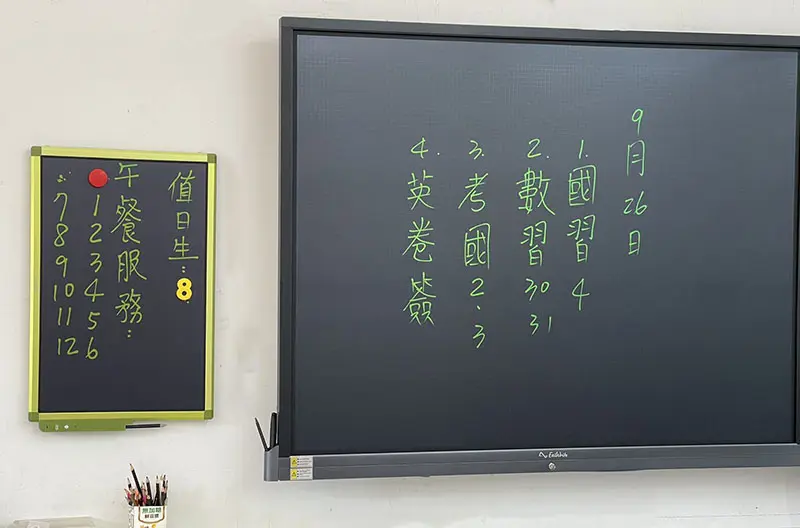 9月26日
1.國習4
2.數習30 31
3.考國2.3
4.英卷簽
值日生:8
午餐服務:
1 2 3 4 5 6
7 8 9 10 11 12
無加糖